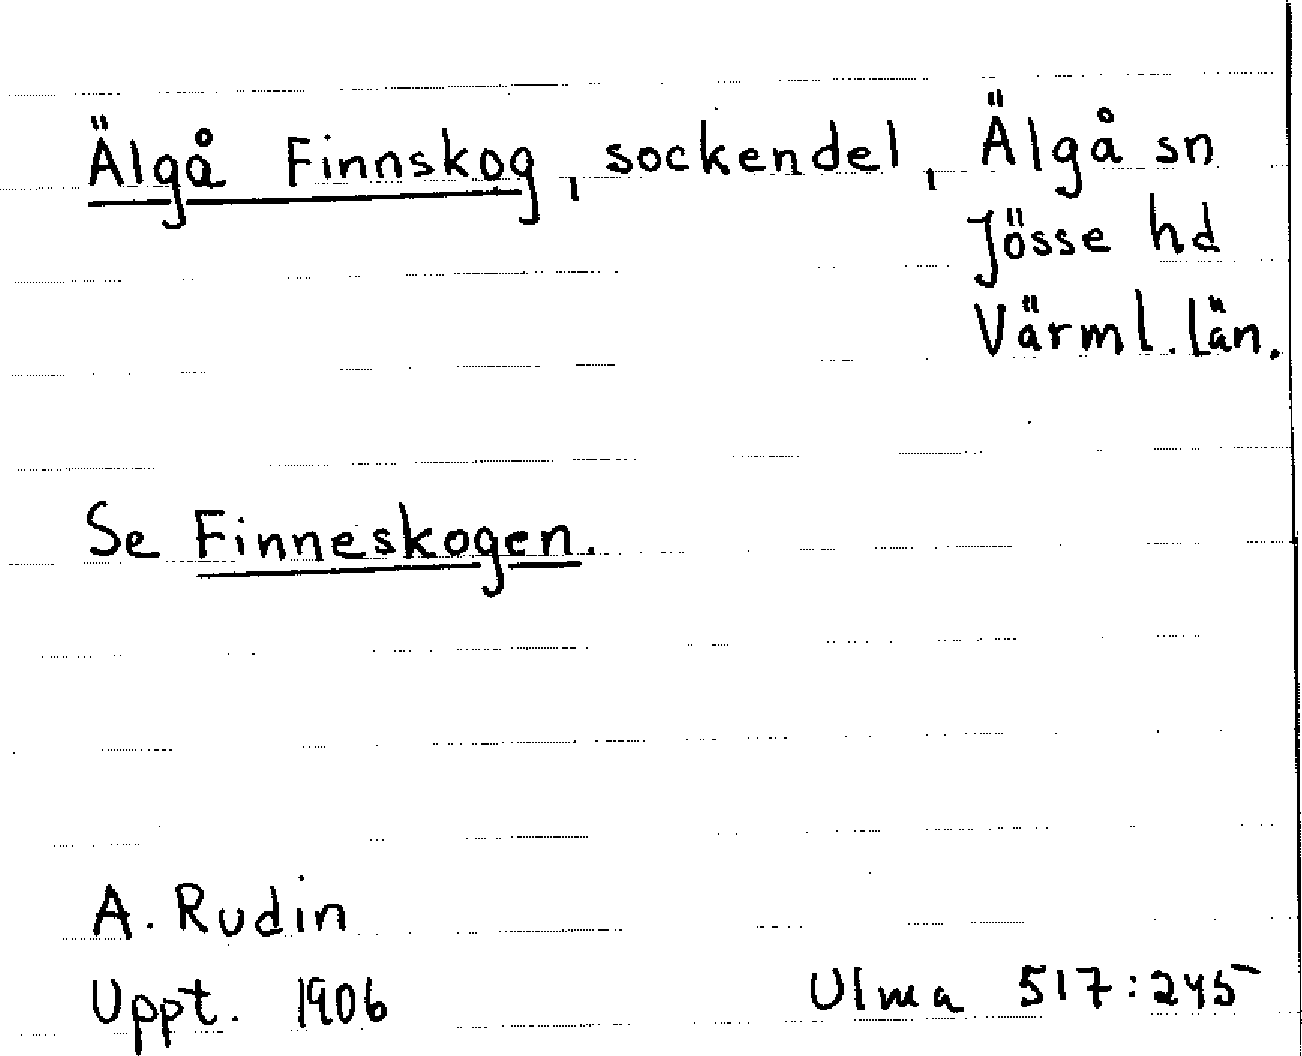 Älgå Finnskog, sockendel, Älgå sn
Jösse hd
Värml. län.
Se Finneskogen.
A. Rudin
Uppt. 1906
Ulma 517:245